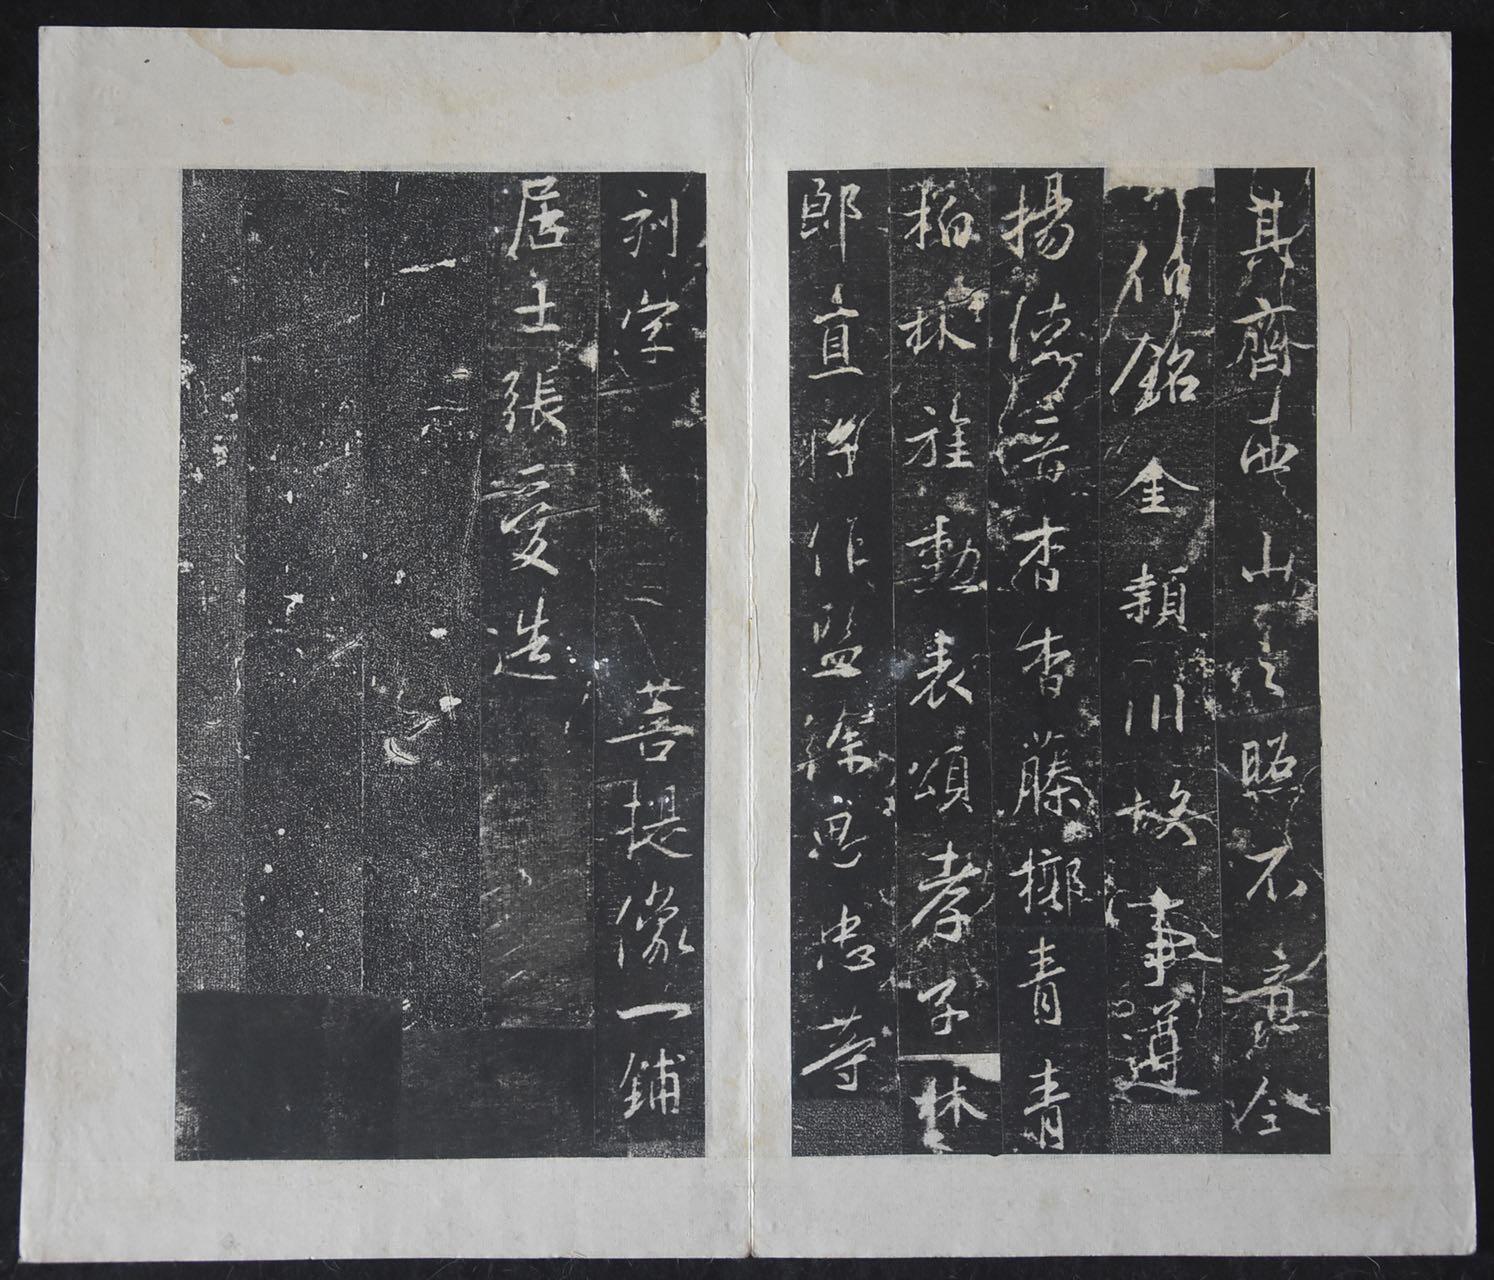 其齊也山之照不意全
銘金頴川格事遵
揚德音杳杳藤槨青青
栢林旌勳表頌孝子林
郎直將作監徐思忠等
刻字菩提像一鋪
居士張愛造